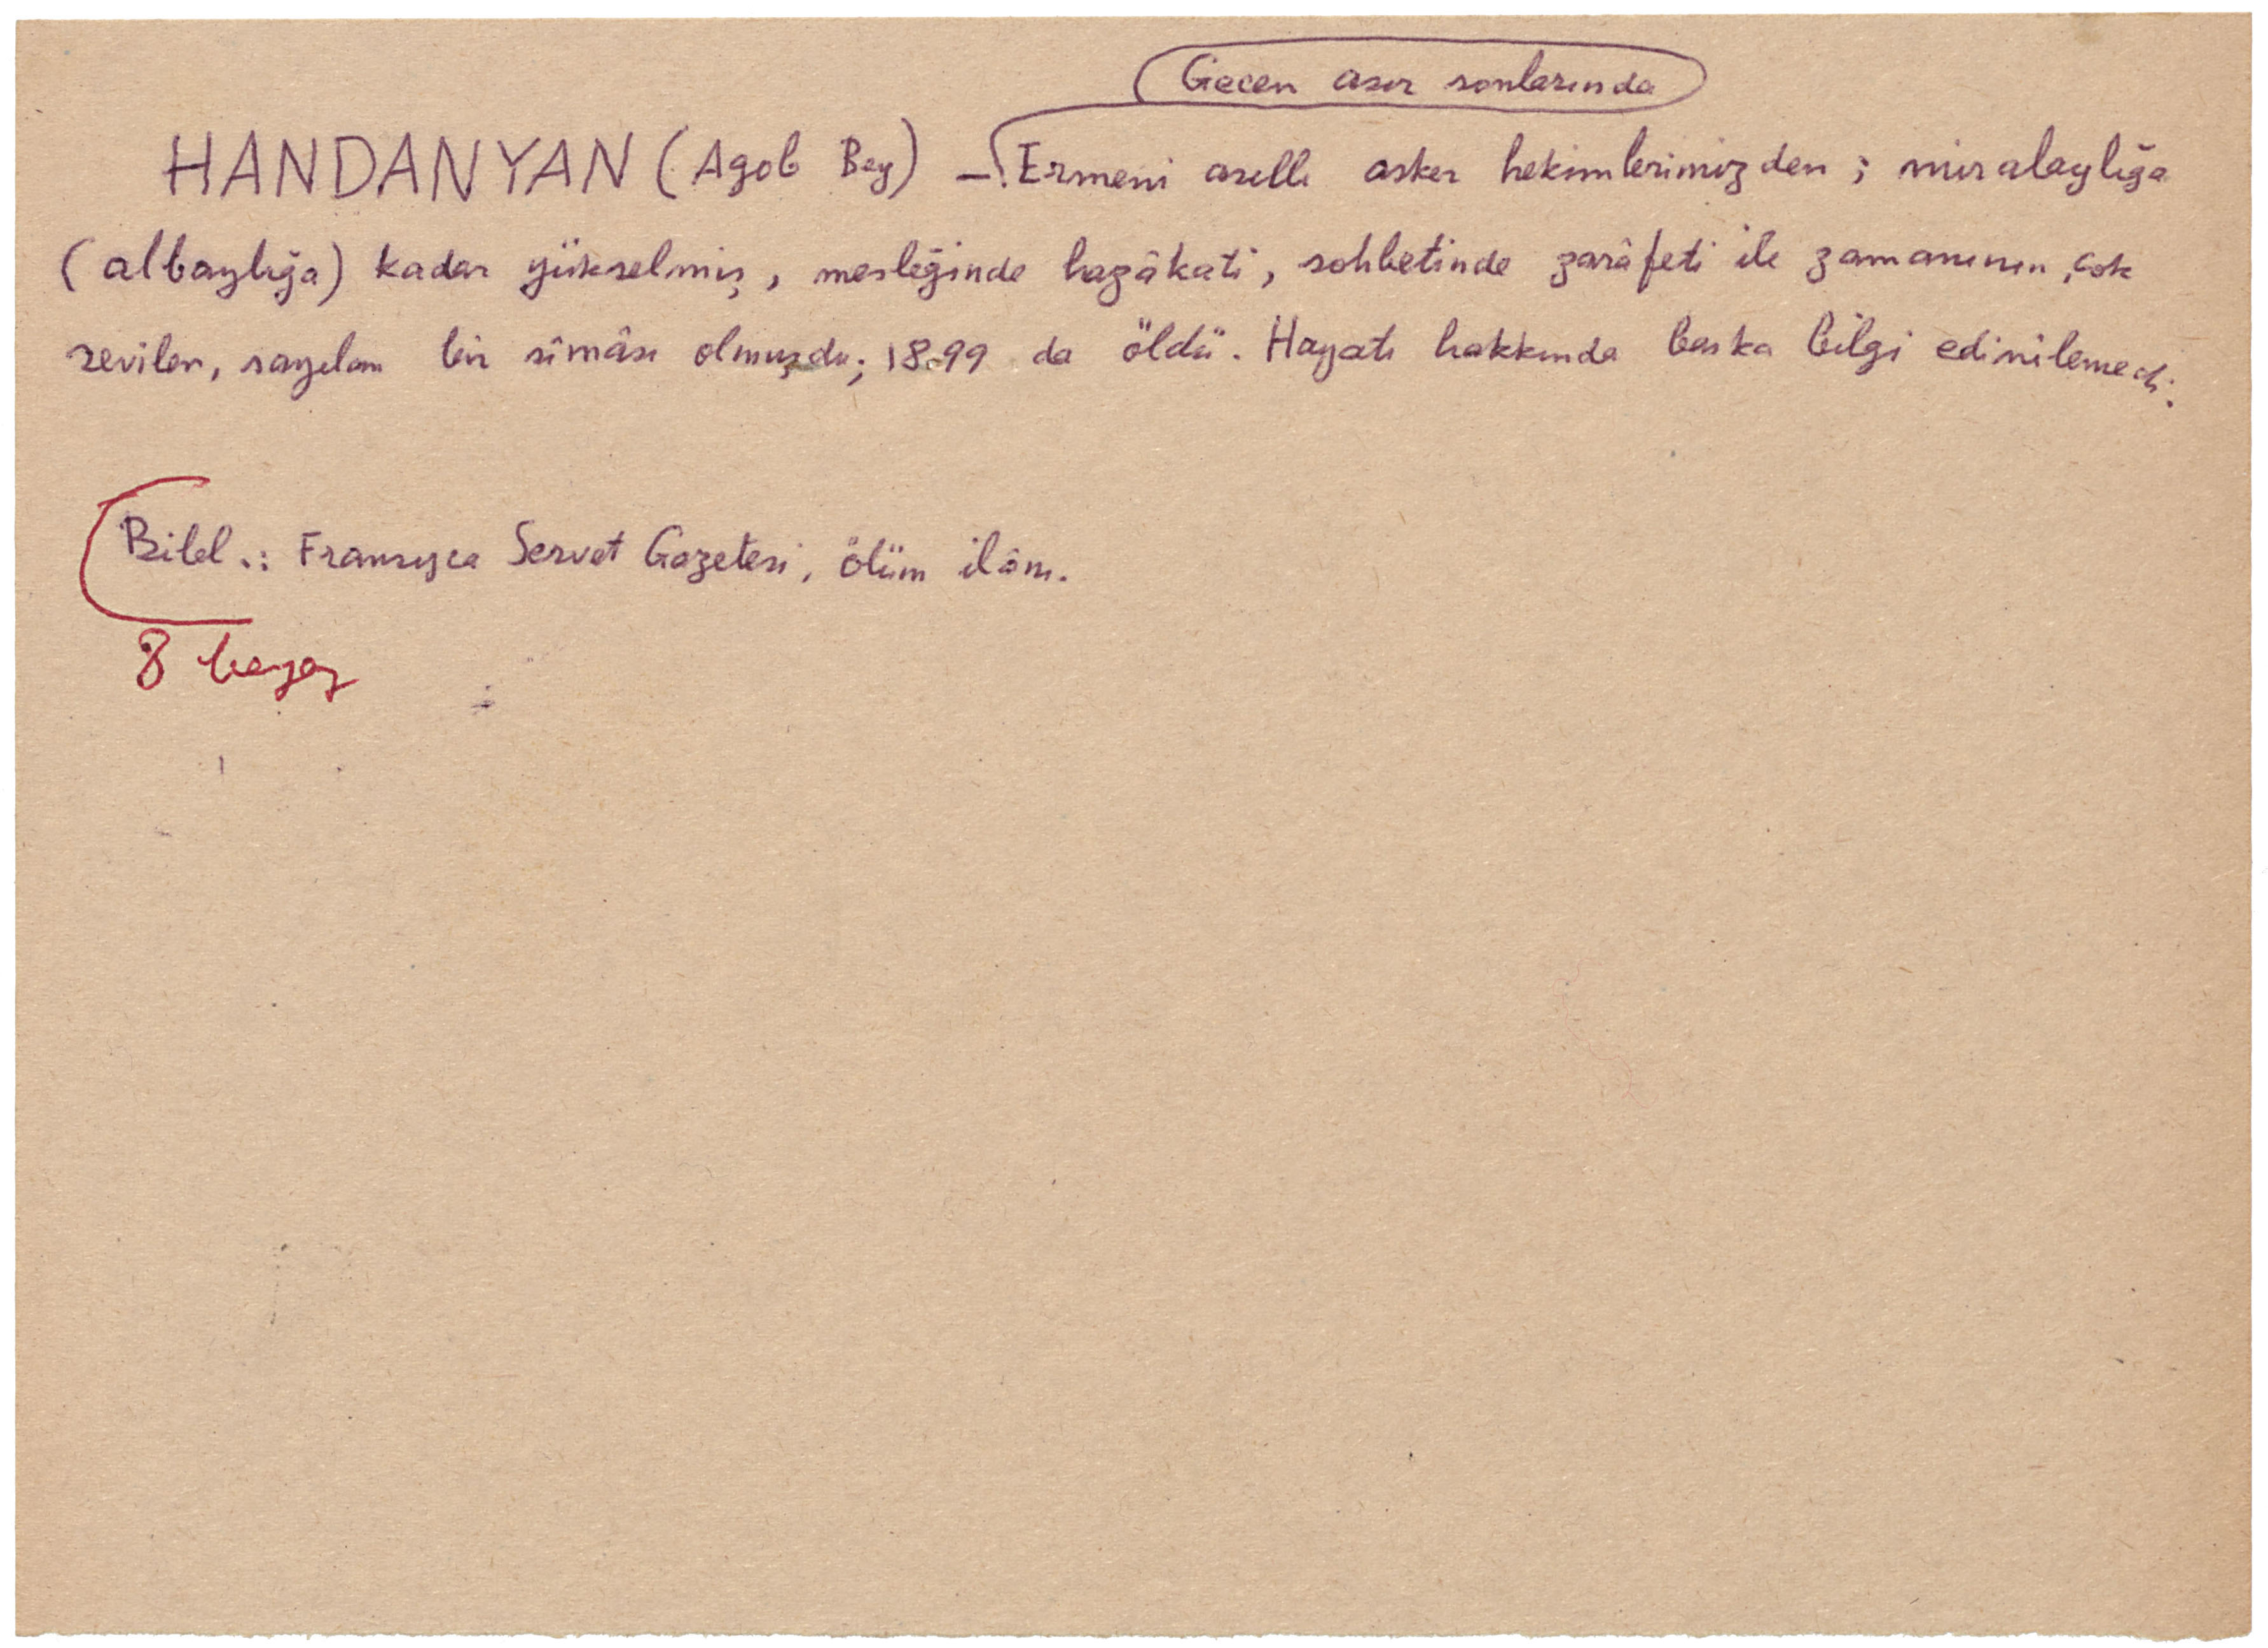 Geçen asır sonlarında
HANDANYAN (Agob Bey) — Ermeni asıllı asker hekimlerimizden; miralaylığa
(albaylığa) kadar yükselmiş, mesleğinde hazâkati, sohbetinde zarâfeti ile zamanının çok
sevilen, sayılan bir sîmâsı olmuşdu; 1899 da öldü. Hayatı hakkında başka bilgi edinilemedi.
Bibl.: Fransızca Servet Gazetesi, ölüm ilânı.
8 beyaz